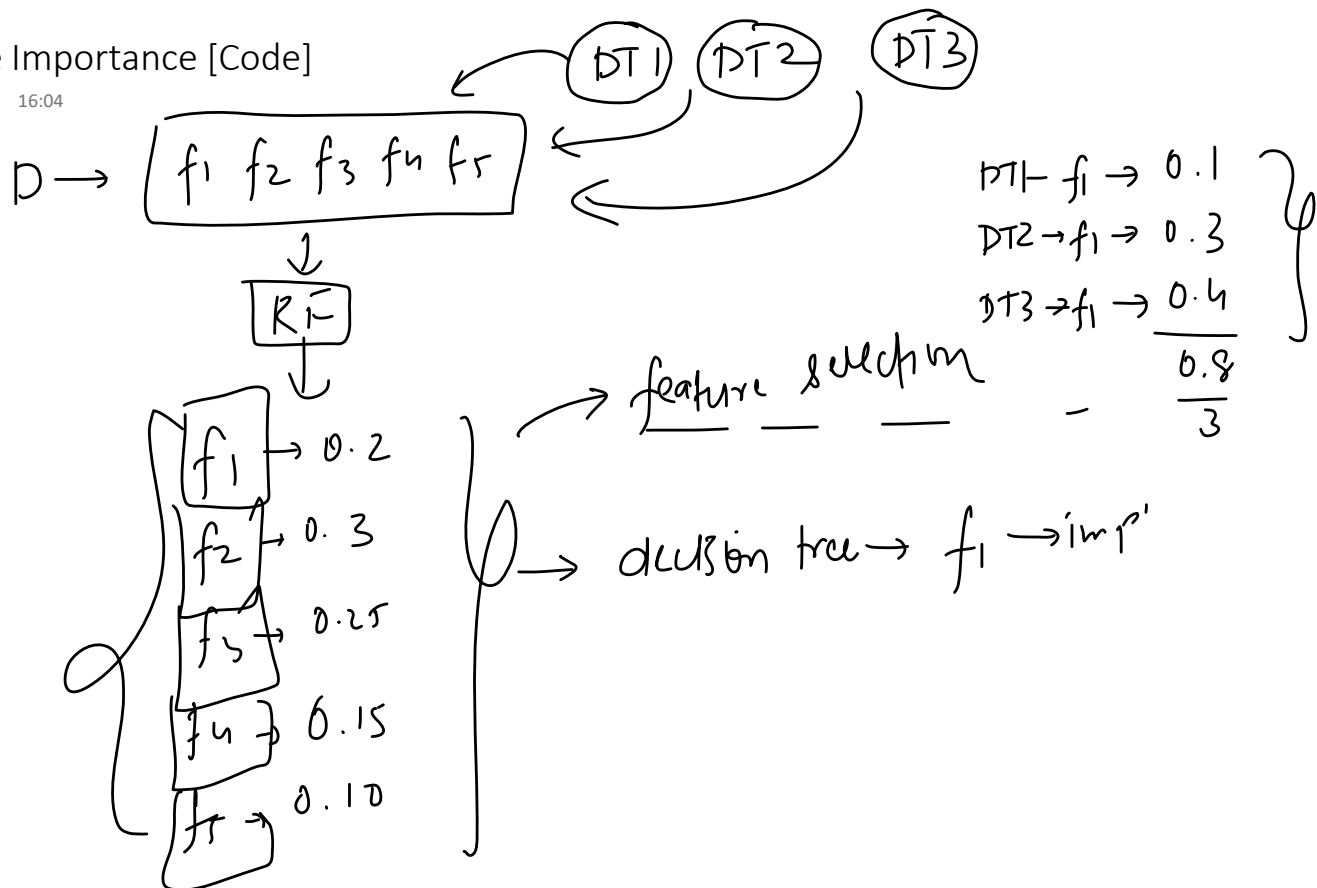 e Importance [Code]
16:04
DT1 DT2 DT3
D → f1 f2 f3 f4 f5
RF
f1 → 0.2
f2 → 0.3
f3 → 0.25
f4 → 0.15
f5 → 0.10
→ feature selection
→ decision tree → f1 → imp
DT1 - f1 → 0.1
DT2 → f1 → 0.3
DT3 → f1 → 0.4
0.8
3